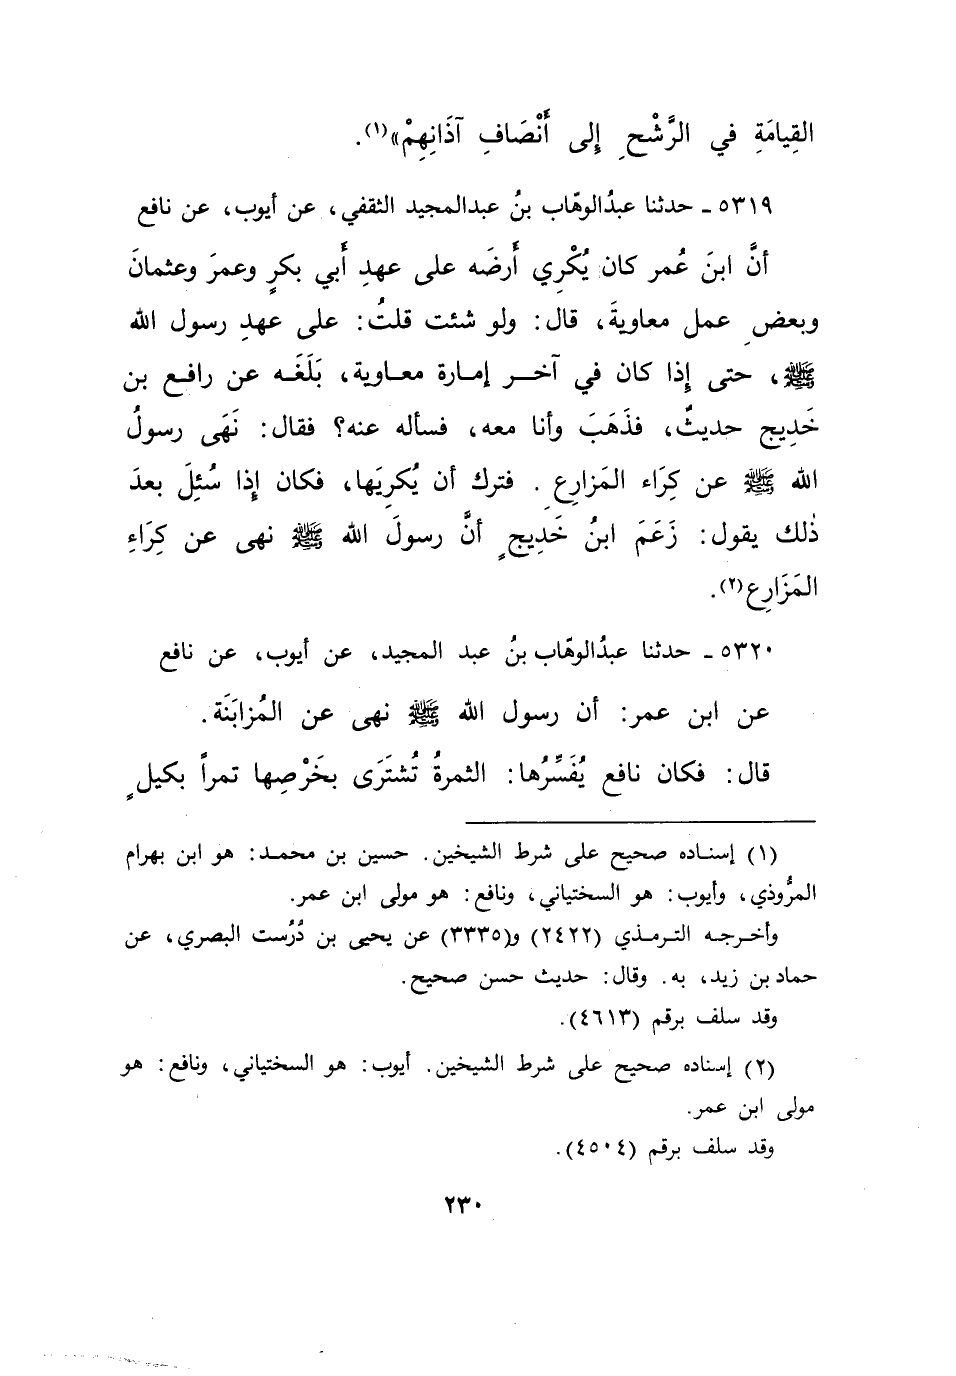 القِيامَةِ في الرَّشْحِ إِلى أَنْصَافِ آذَانِهِمْ»(١).
٥٣١٩ ـ حدثنا عبدُالوهّاب بنُ عبدالمجيد الثقفي، عن أيوب، عن نافع
أنَّ ابنَ عُمر كان يُكْرِي أَرضَه على عهدِ أَبي بكرٍ وعمرَ وعثمانَ
وبعضِ عمل معاويةَ، قال: ولو شئت قلتُ: على عهدِ رسول الله
ﷺ، حتى إِذا كان في آخر إمارة معاوية، بَلَغَه عن رافع بن
خَدِيج حديثٌ، فذَهَبَ وأنا معه، فسأله عنه؟ فقال: نَهَى رسولُ
الله ﷺ عن كِرَاء المَزارِعِ. فترك أن يُكرِيَها، فكان إِذا سُئِلَ بعدَ
ذٰلك يقول: زَعَمَ ابنُ خَدِيجٍ أنَّ رسولَ الله ﷺ نهى عن كِرَاءِ
المَزَارِع(٢).
٥٣٢٠ ـ حدثنا عبدُالوهّاب بنُ عبد المجيد، عن أيوب، عن نافع
عن ابن عمر: أن رسول الله ﷺ نهى عن المُزابَنَة.
قال: فكان نافع يُفَسِّرُها: الثمرةُ تُشتَرَى بخَرْصِها تمراً بكيلٍ
(١) إسناده صحيح على شرط الشيخين. حسين بن محمد: هو ابن بهرام
المرُّوذي، وأيوب: هو السختياني، ونافع: هو مولى ابن عمر.
وأخرجه الترمذي (٢٤٢٢) و(٣٣٣٥) عن يحيى بن دُرُست البصري، عن
حماد بن زيد، به. وقال: حديث حسن صحيح.
وقد سلف برقم (٤٦١٣).
(٢) إسناده صحيح على شرط الشيخين. أيوب: هو السختياني، ونافع: هو
مولى ابن عمر.
وقد سلف برقم (٤٥٠٤).
٢٣٠